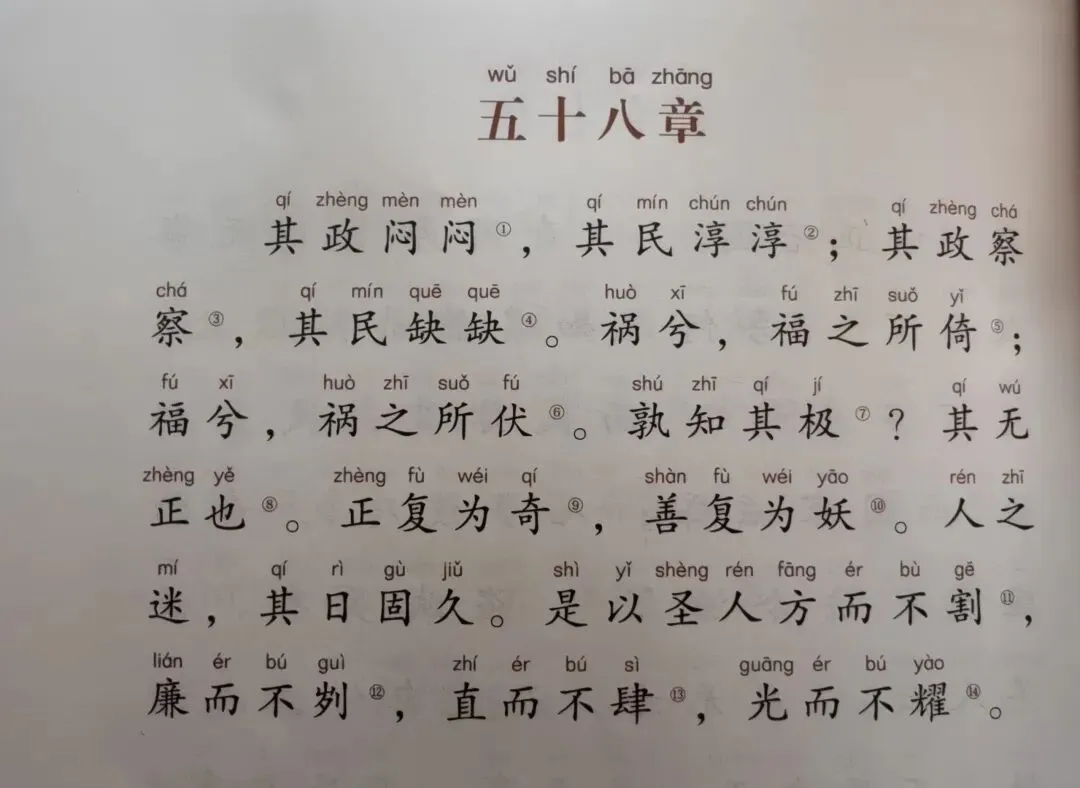 wǔ shí bā zhāng
五十八章
qí zhèng mèn mèn qí mín chún chún qí zhèng chá
其政闷闷①，其民淳淳②；其政察
chá qí mín quē quē huò xī fú zhī suǒ yǐ
察③，其民缺缺④。祸兮，福之所倚⑤；
fú xī huò zhī suǒ fú shú zhī qí jí qí wú
福兮，祸之所伏⑥。孰知其极⑦？其无
zhèng yě zhèng fù wéi qí shàn fù wéi yāo rén zhī
正也⑧。正复为奇⑨，善复为妖⑩。人之
mí qí rì gù jiǔ shì yǐ shèng rén fāng ér bù gē
迷，其日固久。是以圣人方而不割⑪，
lián ér bú guì zhí ér bú sì guāng ér bú yào
廉而不刿⑫，直而不肆⑬，光而不耀⑭。